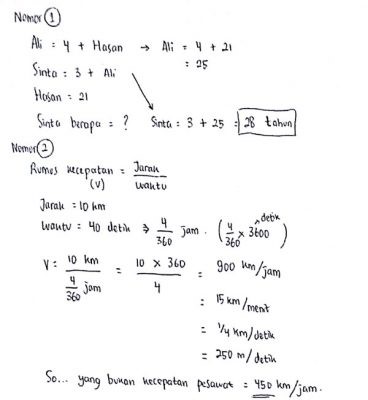 Nomor ①
Ali = 4 + Hasan → Ali = 4 + 21
= 25
Sinta = 3 + Ali
Hasan = 21
Sinta berapa = ? Sinta = 3 + 25 = 28 tahun
Nomor ②
Rumus kecepatan (v) = Jarak / Waktu
Jarak = 10 km
Waktu = 40 detik ⇒ 4/360 jam. (4/360 × 3600 detik)
V = 10 km / 4/360 jam = 10 × 360 / 4 = 900 km/jam
= 15 km/menit
= 1/4 km/detik
= 250 m/detik
So... yang bukan kecepatan pesawat = 450 km/jam.